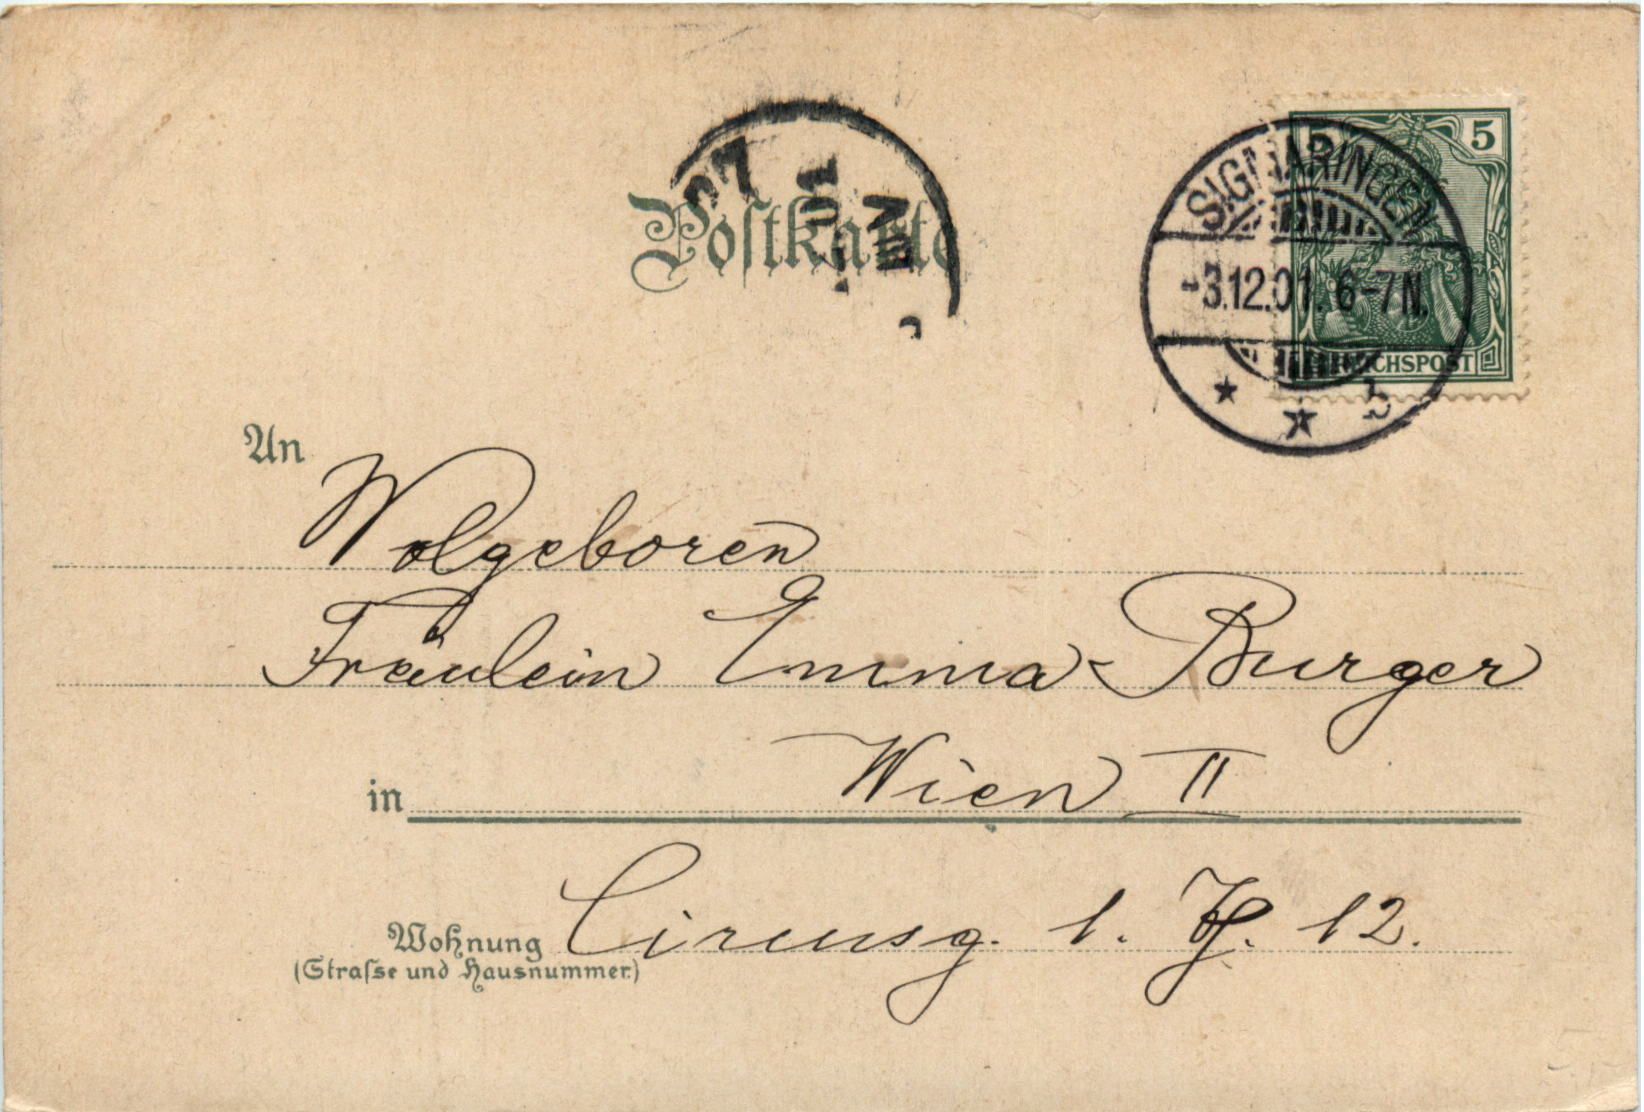 Postkarte
27
01
5 5
SIGMARINGEN
-3.12.01. 6-7N.
* * b
REICHSPOST
An
Wolgeboren
Fräulein Emma Burger
in Wien II
Wohnung Circusg. 1. 12.
(Straſse und Hausnummer.)